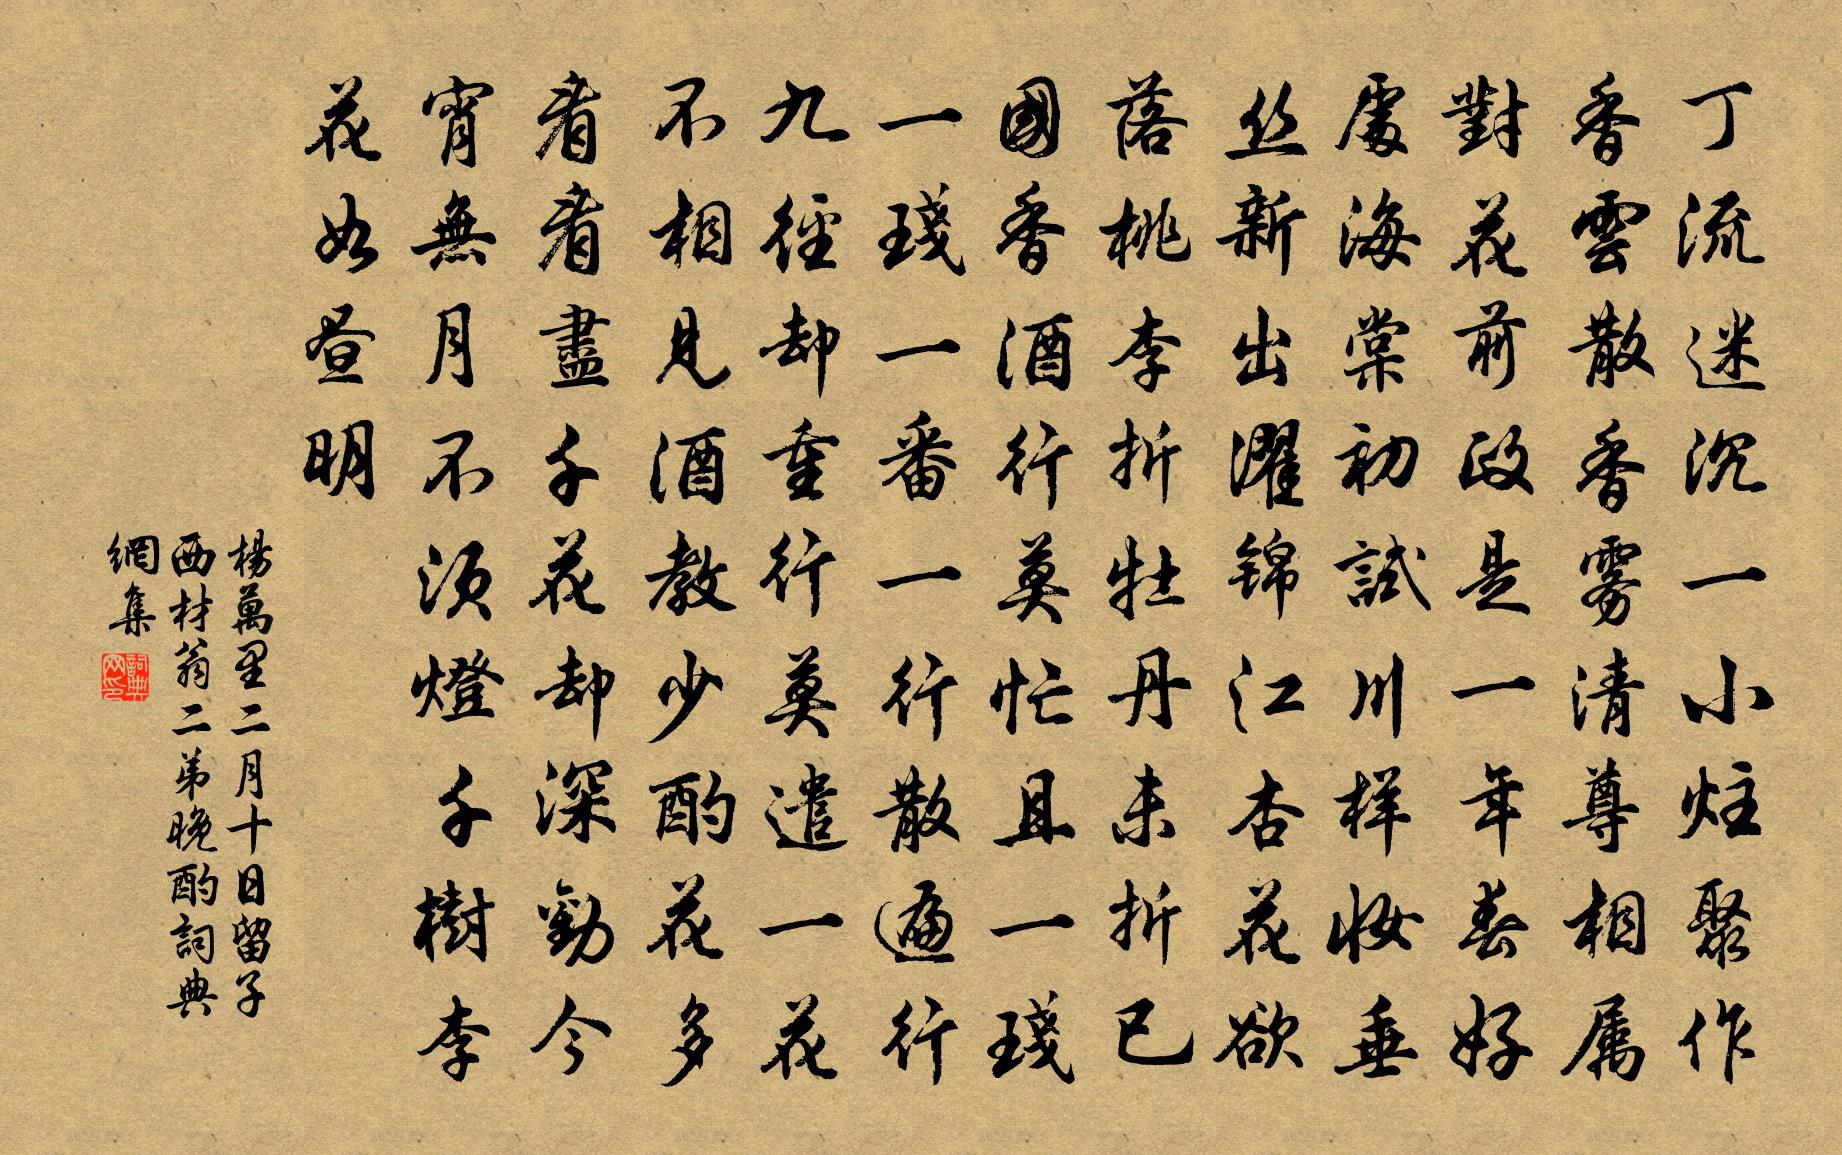 丁流迷沉一小炷聚作
香雲散香雾清尊相属
對花前政是一年春好
處海棠初試川样妆垂
丝新出濯锦江杏花欲
落桃李折牡丹未折已
國香酒行莫忙且一琖
一琖一番一行散遍行
九径却重行莫遣一花
不相見酒教少酌花多
看看盡千花却深勸今
宵無月不须燈千樹李
花如昼明
楊萬里二月十日留子
西材翁二弟晚酌詞典
網集